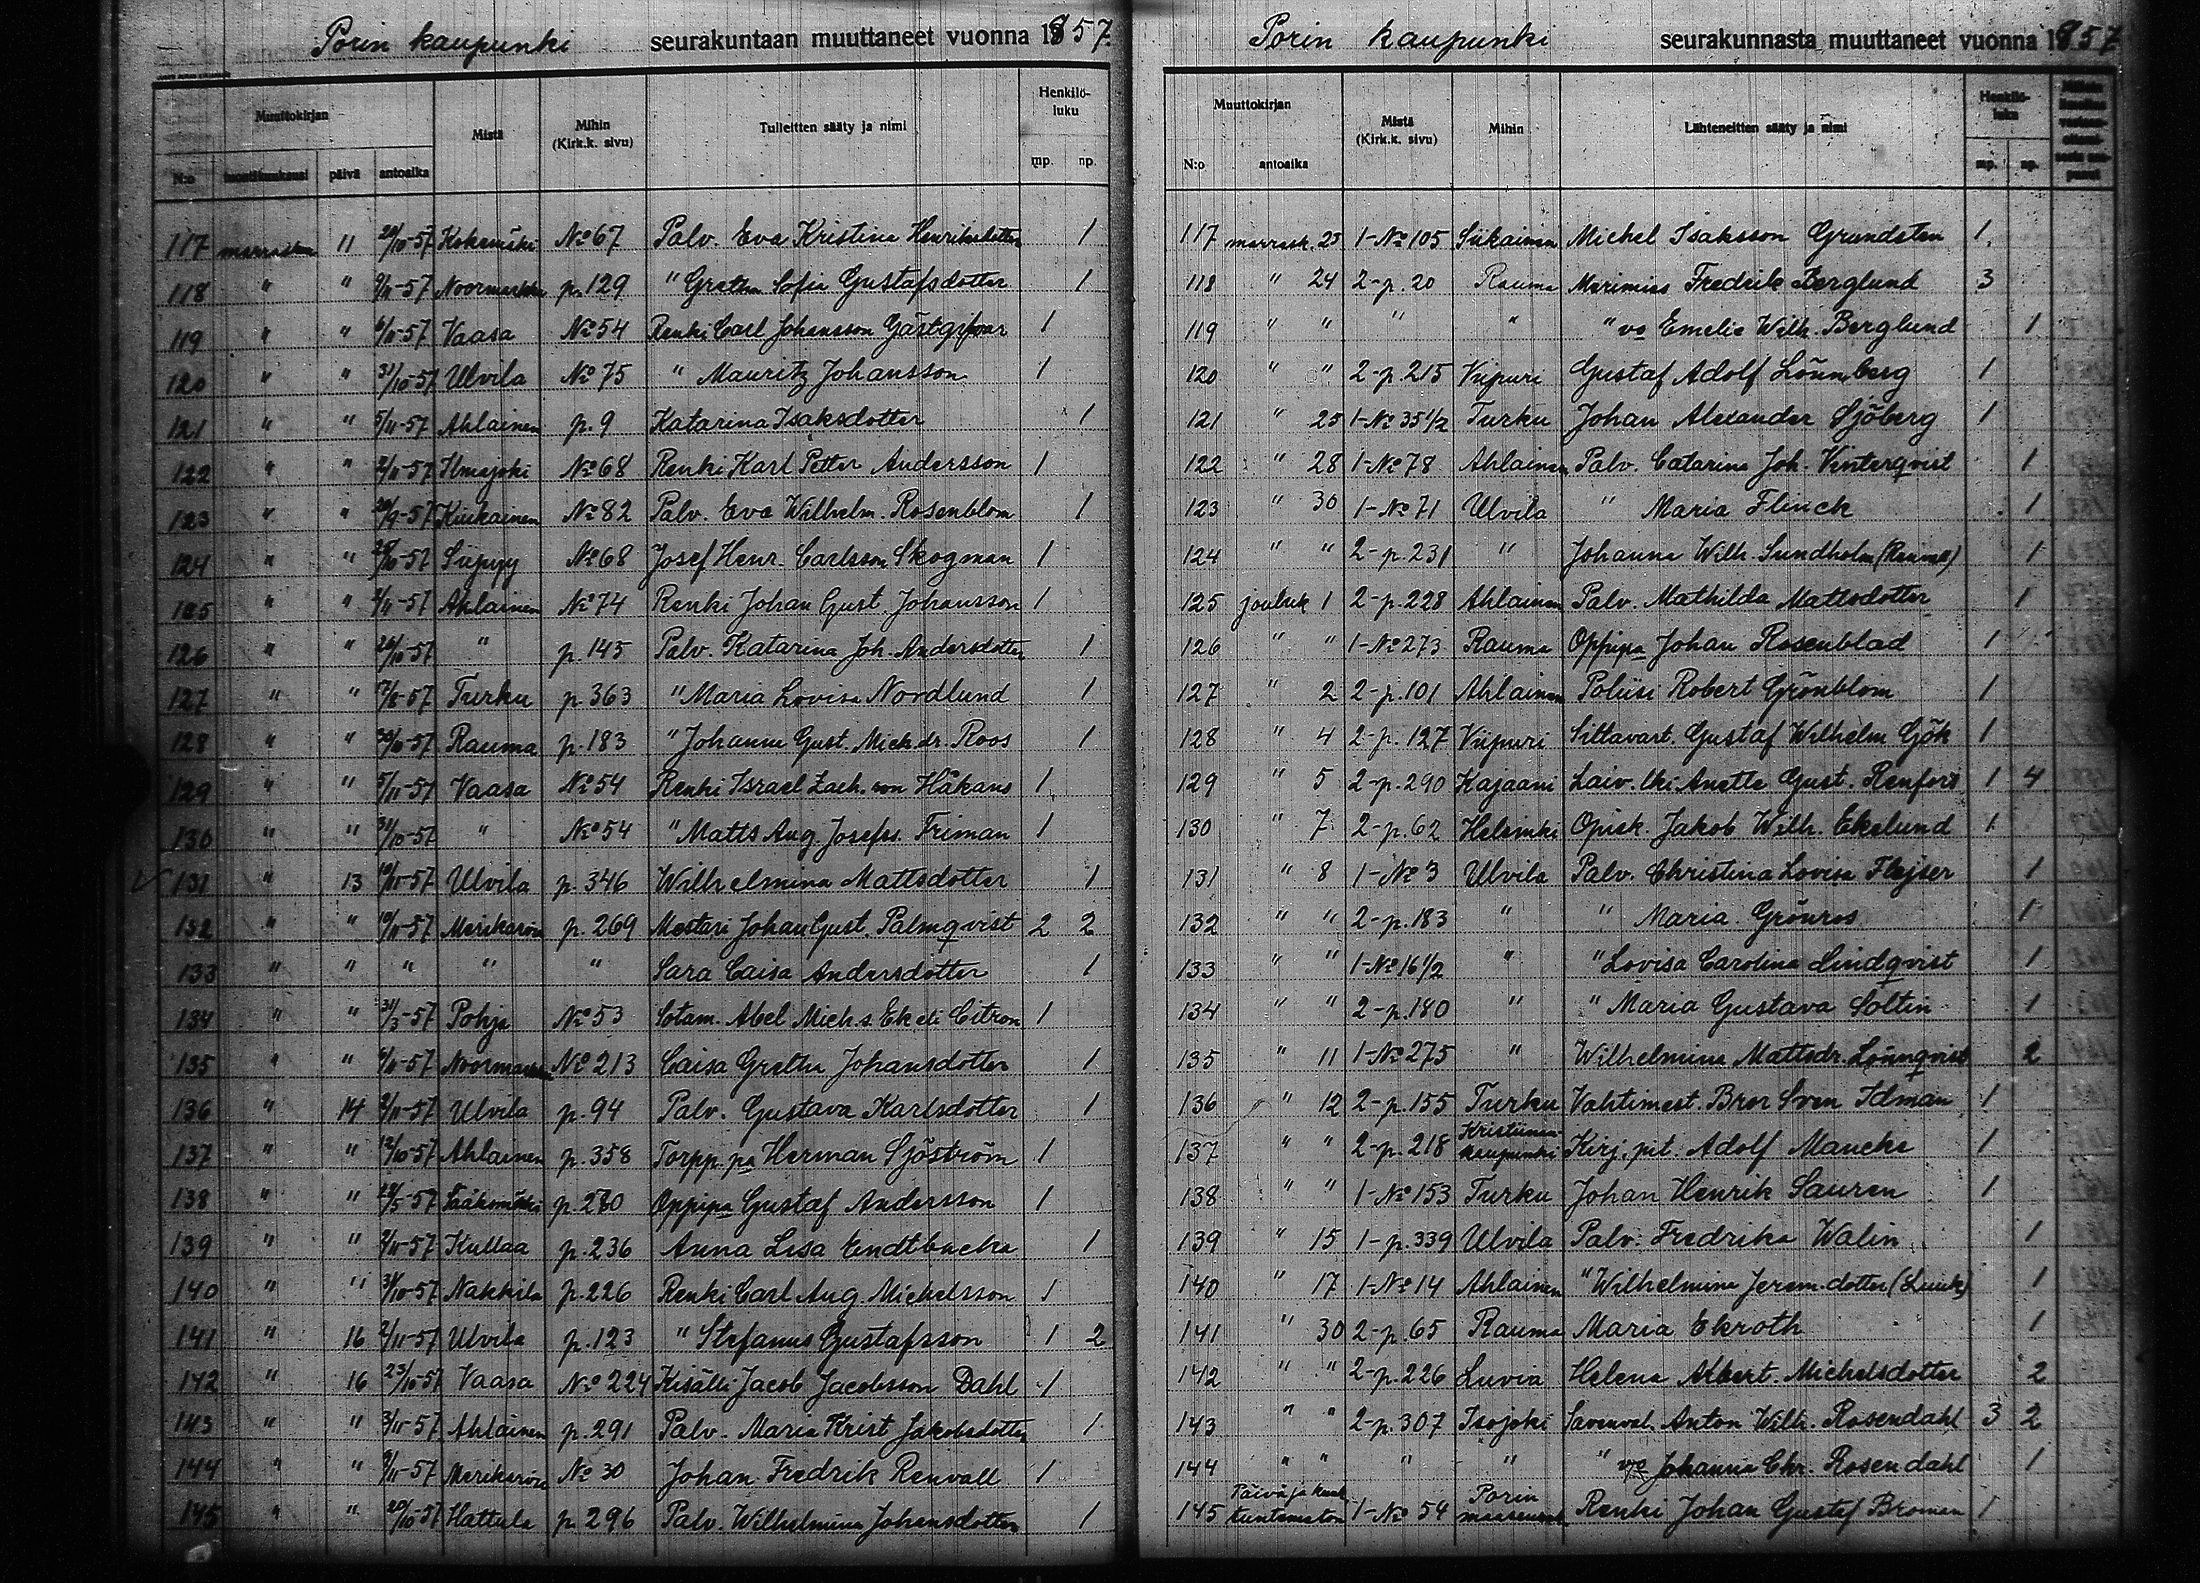 Porin kaupunki seurakuntaan muuttaneet vuonna 1857.
Muuttokirjan Mistä Mihin (Kirk.k. sivu) Tulleitten sääty ja nimi Henkilö-luku
N:o tuontikuukausi päivä antoaika mp. np.
117 marraskuu 11 20/10-57 Kokemäki No 67 Palv. Eva Kristina Henriksdotter 1
118 " " 9/11-57 Noormarkku p. 129 " Gretha Sofia Gustafsdotter 1
119 " " 6/11-57 Vaasa No 54 Renki Carl Johansson Gästgifvar 1
120 " " 31/10-57 Ulvila No 75 " Mauritz Johansson 1
121 " " 5/11-57 Ahlainen p. 9 Katarina Isaksdotter 1
122 " " 2/11-57 Ilmajoki No 68 Renki Karl Petter Andersson 1
123 " " 20/9-57 Kiukainen No 82 Palv. Eva Wilhelm. Rosenblom 1
124 " " 28/10-57 Siippy No 68 Josef Henr. Carlsson Skogman 1
125 " " 2/11-57 Ahlainen No 74 Renki Johan Gust. Johansson 1
126 " " 26/10-57 " p. 145 Palv. Katarina Joh. Andersdotter 1
127 " " 17/8-57 Turku p. 363 " Maria Lovisa Nordlund 1
128 " " 30/10-57 Rauma p. 183 " Johanna Gust. Mich.dr. Roos 1
129 " " 5/11-57 Vaasa No 54 Renki Israel Zach. son Håkans 1
130 " " 30/10-57 " No 54 " Matts Aug. Josefss. Friman 1
131 " 13 10/11-57 Ulvila p. 346 Wilhelmina Mattsdotter 1
132 " " 10/11-57 Merikarvia p. 269 Mestari Johan Gust. Palmqvist 2 2
133 " " " " " Sara Caisa Andersdotter 1
134 " " 31/3-57 Pohja No 53 Sotam. Abel Mich.s. Ek eli Citron 1
135 " " 6/11-57 Noormarkku No 213 Caisa Gretha Johansdotter 1
136 " 14 2/11-57 Ulvila p. 94 Palv. Gustava Karlsdotter 1
137 " " 12/10-57 Ahlainen p. 358 Torpp. pa Herman Sjöström 1
138 " " 28/5-57 Sääksmäki p. 280 Oppipa Gustaf Andersson 1
139 " " 2/11-57 Kullaa p. 236 Anna Lisa Endtbacka 1
140 " " 31/10-57 Nakkila p. 226 Renki Carl Aug. Michelsson 1
141 " 16 2/11-57 Ulvila p. 123 " Stefanus Gustafsson 1 2
142 " 16 23/10-57 Vaasa No 224 Kisälli Jacob Jacobsson Dahl 1
143 " " 3/11-57 Ahlainen p. 291 Palv. Maria Krist Jakobsdotter 1
144 " " 9/11-57 Merikarvia No 30 Johan Fredrik Renvall 1
145 " " 20/10-57 Hattula p. 296 Palv. Wilhelmina Johansdotter 1
Porin kaupunki seurakunnasta muuttaneet vuonna 1857
Muuttokirjan Mistä (Kirk.k. sivu) Mihin Lähteneitten sääty ja nimi Henkilö-luku
N:o antoaika mp. np.
117 marrask. 23 1-No 105 Siikainen Michel Isaksson Grundsten 1
118 " 24 2-p. 20 Rauma Merimies Fredrik Berglund 3
119 " " " " " vo Emelie Wilh. Berglund 1
120 " " 2-p. 215 Viipuri Gustaf Adolf Lönnberg 1
121 " 25 1-No 35 1/2 Turku Johan Alexander Sjöberg 1
122 " 28 1-No 78 Ahlainen Palv. Catarina Joh. Vinterqvist 1
123 " 30 1-No 71 Ulvila " Maria Flinck 1
124 " " 2-p. 231 " Johanna Wilh. Sundholm 1
125 jouluk 1 2-p. 228 Ahlainen Palv. Mathilda Mattsdotter 1
126 " " 1-No 273 Rauma Oppipa Johan Rosenblad 1
127 " 2 2-p. 101 Ahlainen Poliisi Robert Grönblom 1
128 " 4 2-p. 127 Viipuri Siltavart. Gustaf Wilhelm Gök 1
129 " 5 2-p. 290 Kajaani Laiv. lki Anette Gust. Renfors 1 4
130 " 7 2-p. 62 Helsinki Opisk. Jakob Wilh. Ekelund 1
131 " 8 1-No 3 Ulvila Palv. Christina Lovisa Flejser 1
132 " " 2-p. 183 " " Maria Grönros 1
133 " " 1-No 16 1/2 " " Lovisa Carolina Lindqvist 1
134 " " 2-p. 180 " " Maria Gustava Soltin 1
135 " 11 1-No 275 " Wilhelmina Mattsdr. Lönnqvist 2
136 " 12 2-p. 155 Turku Vahtimest. Bror Sven Idman 1
137 " " 2-p. 218 Kristiinan-kaupunki Kirj. pit. Adolf Mancke 1
138 " " 1-No 153 Turku Johan Henrik Sauren 1
139 " 15 1-p. 339 Ulvila Palv. Fredrika Walin 1
140 " 17 1-No 14 Ahlainen " Wilhelmina Jerem.dotter 1
141 " 30 2-p. 65 Rauma Maria Ekroth 1
142 " " 2-p. 226 Luvia Helena Albert. Michelsdotter 2
143 " " 2-p. 307 Isojoki Savenval. Anton Wilh. Rosendahl 3 2
144 " " " " " vo Johanna Chr. Rosendahl 1
145 Päivä ja kuuk. tuntematon 1-No 54 Porin maaseurak. Renki Johan Gustaf Broman 1